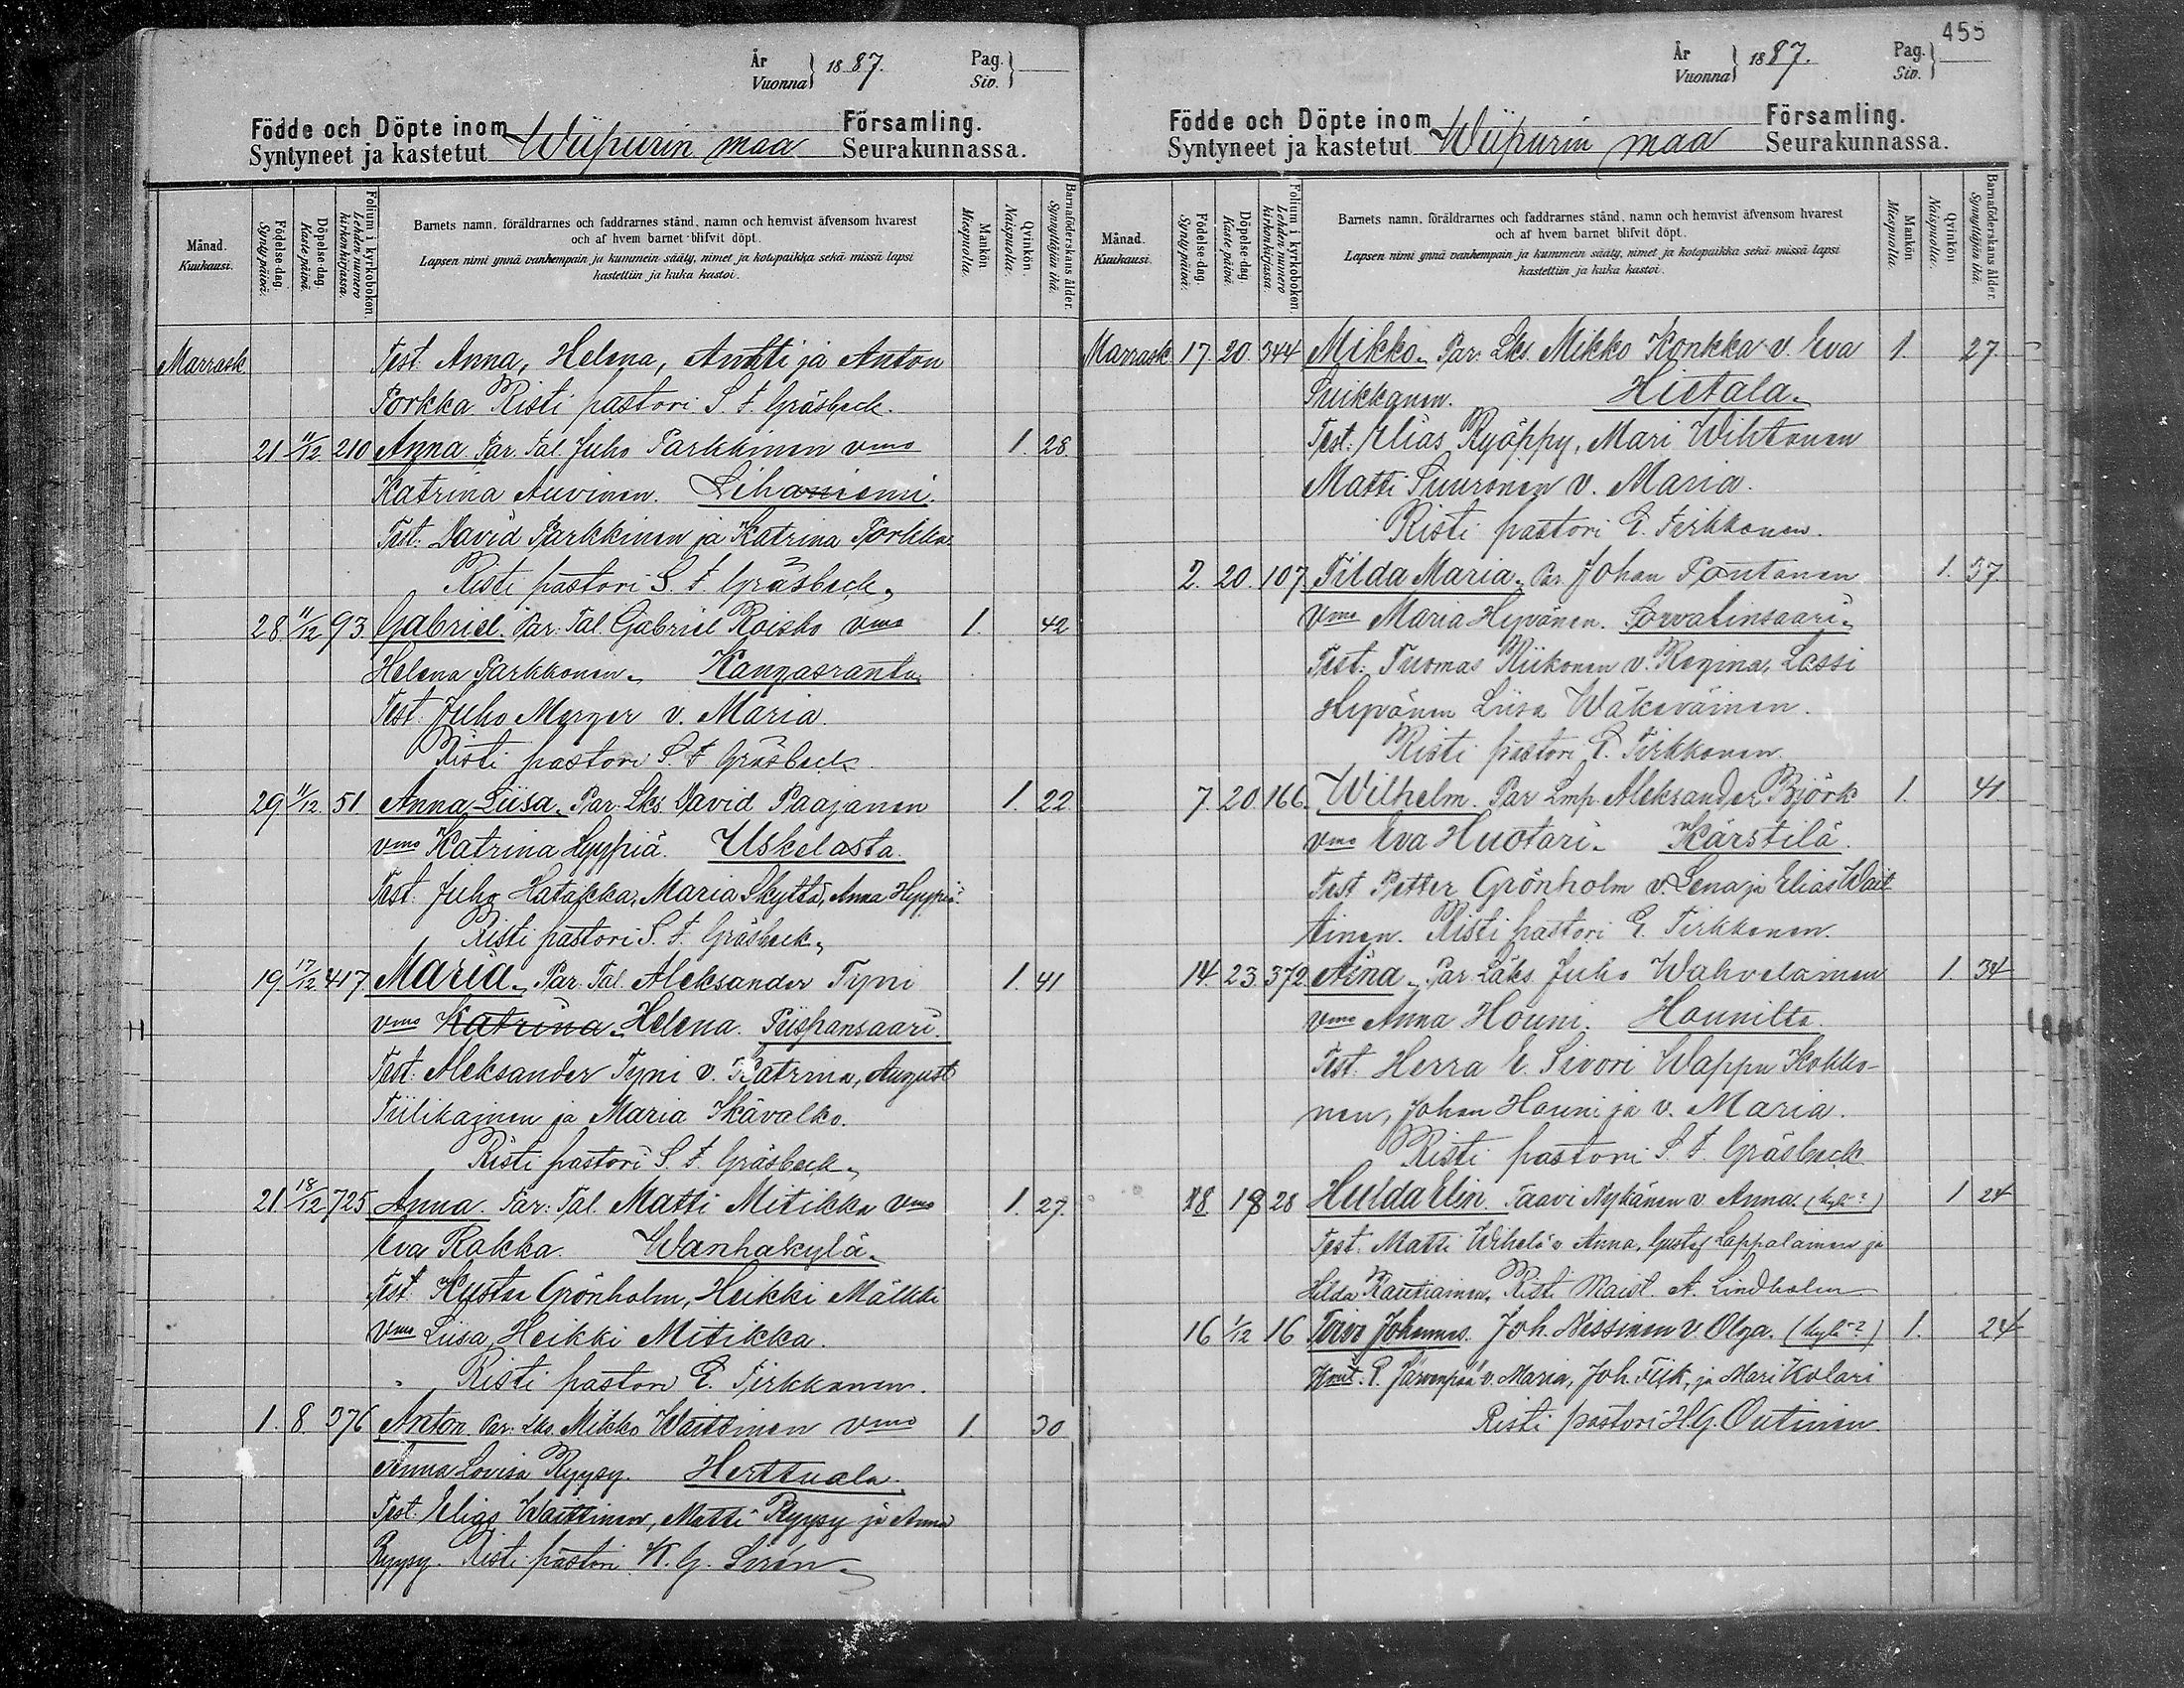 År
Vuonna } 1887.
Pag.
Siv. }
Födde och Döpte inom
Syntyneet ja kastetut Wiipurin maa Församling.
Seurakunnassa.
Månad.
Kuukausi.
Födelse-dag.
Syntypäivä.
Döpelse-dag.
Kaste-päivä.
Folium i kyrkoboken.
Lehden numero kirkonkirjassa.
Barnets namn, föräldrarnes och faddrarnes stånd, namn och hemvist äfvensom hvarest
och af hvem barnet blifvit döpt.
Lapsen nimi ynnä vanhempain ja kummein sääty, nimet ja kotopaikka sekä missä lapsi
kastettiin ja kuka kastoi.
Mankön.
Miespuolia.
Qvinkön.
Naispuolia.
Barnaföderskans ålder.
Synnyttäjän ikä.
Marrask Test. Anna, Helena, Antti ja Anton
Porkka Risti pastori S. F. Gräsbeck.
21 11/12 210 Anna Par. Tal. Juho Parkkinen vmo 1. 28.
Katrina Auvinen. Lihaniemi.
Test. David Parkkinen ja Katrina Porkka
Risti pastori S. F. Gräsbeck.
28 11/12 93 Gabriel. Par. Tal. Gabriel Roisko vmo 1. 42
Helena Parkkonen. Kangasranta
Test. Juho Merger v. Maria.
Risti pastori S. F. Gräsbeck.
29 11/12 51. Anna Liisa. Par. Lks. David Paajanen 1. 22.
vmo Katrina Hyppiä. Uskelasta.
Test. Juho Hatakka, Maria Skyttä, Anna Hyppiä.
Risti pastori S. F. Gräsbeck.
19 17/12 417 Maria. Par. Tal. Aleksander Typni 1. 41
vmo Katrina Helena. Piispansaari.
Test. Aleksander Typni v. Katrina, August
Tiilikainen ja Maria Skävalko.
Risti pastori S. F. Gräsbeck.
21 18/12 725 Anna. Par. Tal. Matti Mitikka vmo 1. 27.
Eva Rakka. Wanhakylä.
Test. Kustaa Grönholm, Heikki Mälkki
vmo Liisa, Heikki Mitikka.
Risti pastori E. Tirkkonen.
1. 8. 376 Anton. Par. Lks. Mikko Waittinen vmo 1. 30
Anna Lovisa Ryysy. Herttuala.
Test. Elias Waittinen, Matti Ryysy ja Anna
Ryysy. Risti pastori K. G. Sirén
455
År
Vuonna } 1887.
Pag.
Siv. }
Födde och Döpte inom
Syntyneet ja kastetut Wiipurin maa Församling.
Seurakunnassa.
Månad.
Kuukausi.
Födelse-dag.
Syntypäivä.
Döpelse-dag.
Kaste-päivä.
Folium i kyrkoboken.
Lehden numero kirkonkirjassa.
Barnets namn, föräldrarnes och faddrarnes stånd, namn och hemvist äfvensom hvarest
och af hvem barnet blifvit döpt.
Lapsen nimi ynnä vanhempain ja kummein sääty, nimet ja kotopaikka sekä missä lapsi
kastettiin ja kuka kastoi.
Mankön.
Miespuolia.
Qvinkön.
Naispuolia.
Barnaföderskans ålder.
Synnyttäjän ikä.
Marrask 17. 20. 344 Mikko. Par. Lks. Mikko Konkka v. Eva 1. 27.
Suikkanen. Hietala.
Test. Elias Ryöppy, Mari Wihtonen
Matti Suuronen v. Maria.
Risti pastori E. Tirkkonen.
2. 20. 107 Tilda Maria. Par. Johan Pontanen 1. 37
vmo Maria Hyvönen. Porvalinsaari.
Test. Tuomas Riikonen v. Regina, Lassi
Hyvönen Liisa Wäkeväinen.
Risti pastori E. Tirkkonen.
7. 20 166. Wilhelm. Par. Lmp. Aleksander Björk 1. 41.
vmo Eva Huotari. Kärstilä.
Test Petter Grönholm v. Lena ja Elias Wait
tinen. Risti pastori E. Tirkkonen.
14. 23 372 Aina. Par. Läks. Juho Wahvelainen 1 34
vmo Anna Houni. Hounilta.
Test. Herra E. Sivori Wappu Kokko-
nen, Johan Houni ja v. Maria.
Risti pastori S. F. Gräsbeck
18 19 28 Hulda Elin. Taavi Nykänen v. Anna. (kylä?) 1 24
Test. Matti Wihelä v. Anna, Gustaf Lappalainen ja
Hilda Rautiainen. Risti Maist. A. Lindholm
16 1/12 16 Toivo Johannes. Joh. Nissinen v. Olga. (kylä?) 1. 24
Kumt. P. Järvenpää v. Maria, Joh. Tiik, ja Mari Kolari
Risti pastori H. G. Outinen